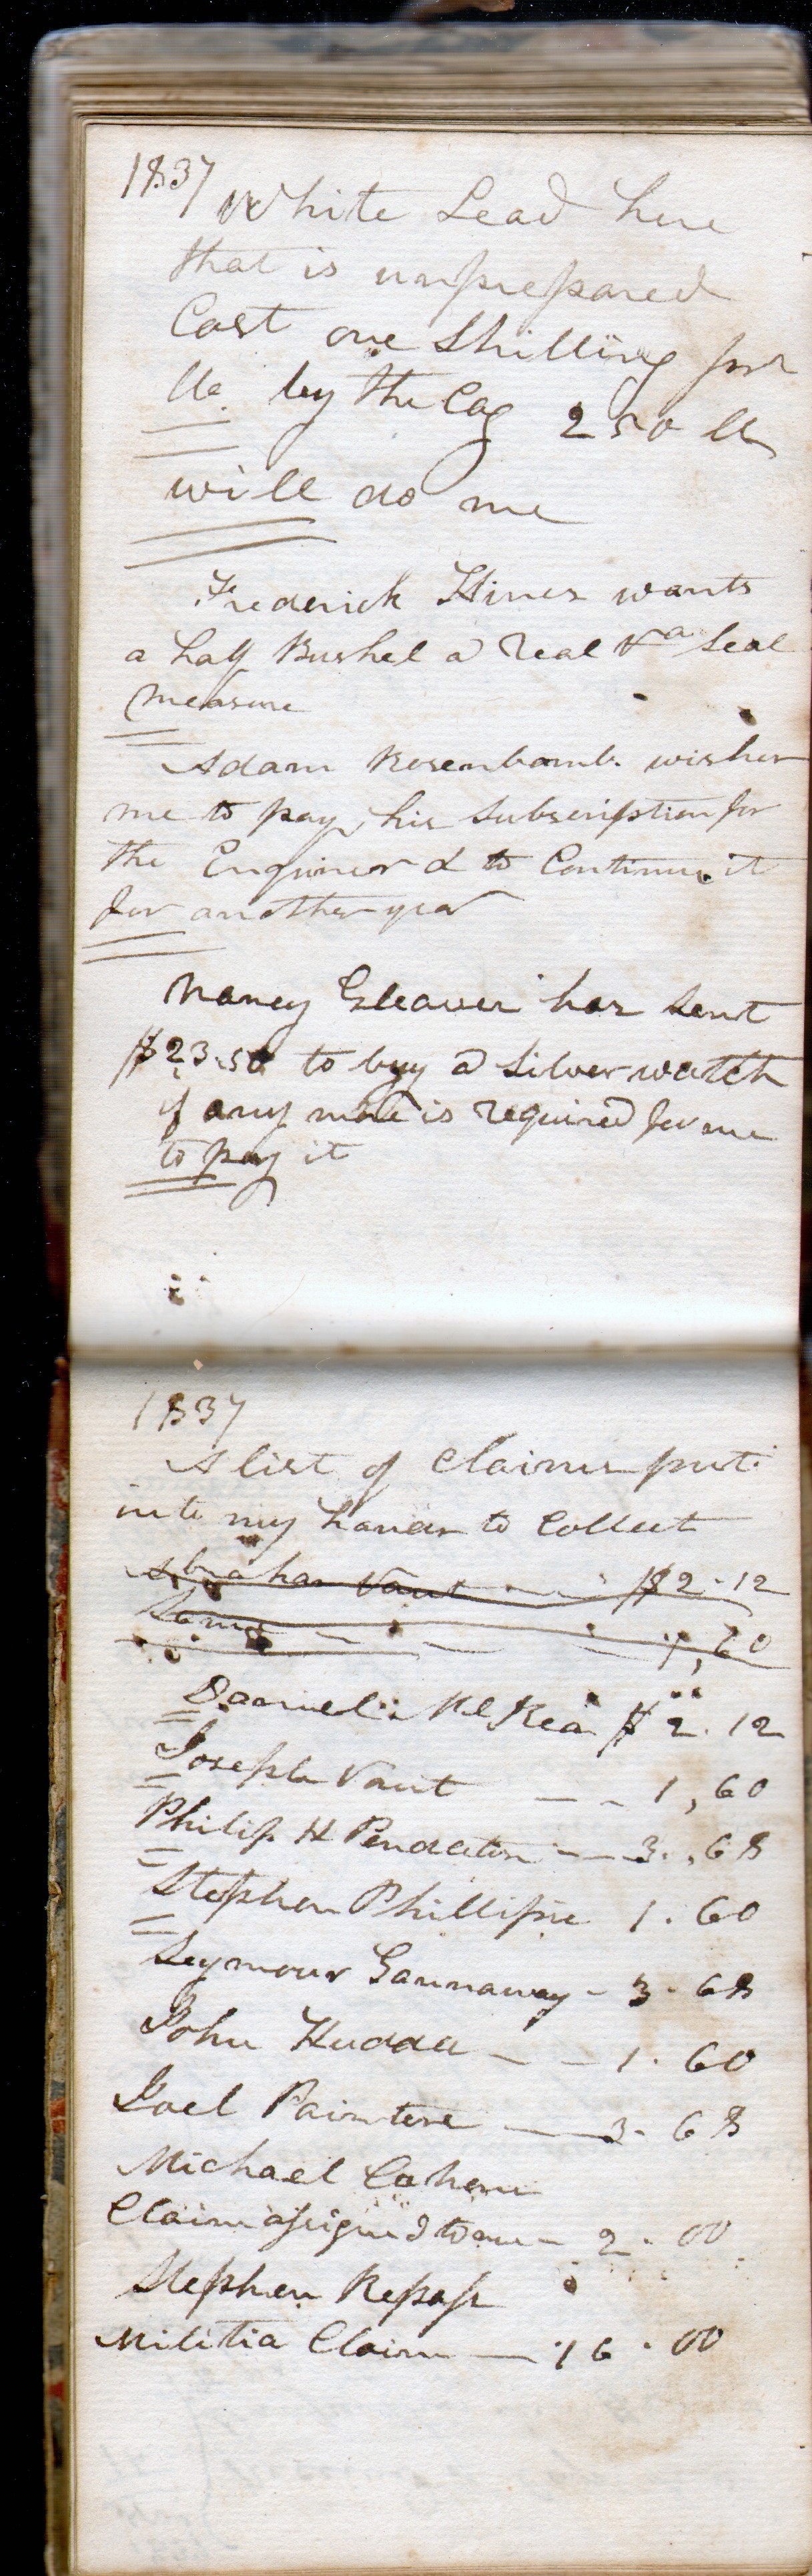 1837
White Lead here
that is unprepared
Cost one Shilling per
lb. by the Cag 250 lb
will do me
Frederick Hines wants
a half Bushel a real Va Seal
measure
Adam Rosenbomb. wishes
me to pay his Subscription for
the Enquirer & to Continue it
for another year
Nancy Cleaver has sent
$23.50 to buy a Silver watch
if any more is required for me
to pay it
1837
A list of Claims put
into my hands to Collect
Abraham Vaut $2.12
Same 1,60
Daniel McKea $2.12
Joseph Vaut 1,60
Philip H Pendleton 3.,68
Stephen Phillipie 1.60
Seymour Gannaway - 3.68
John Hudda 1.60
Joel Paintere 3.68
Michael Cahen
Claim assigned to me - 2.00
Stephen Repass
Militia Claim 16.00